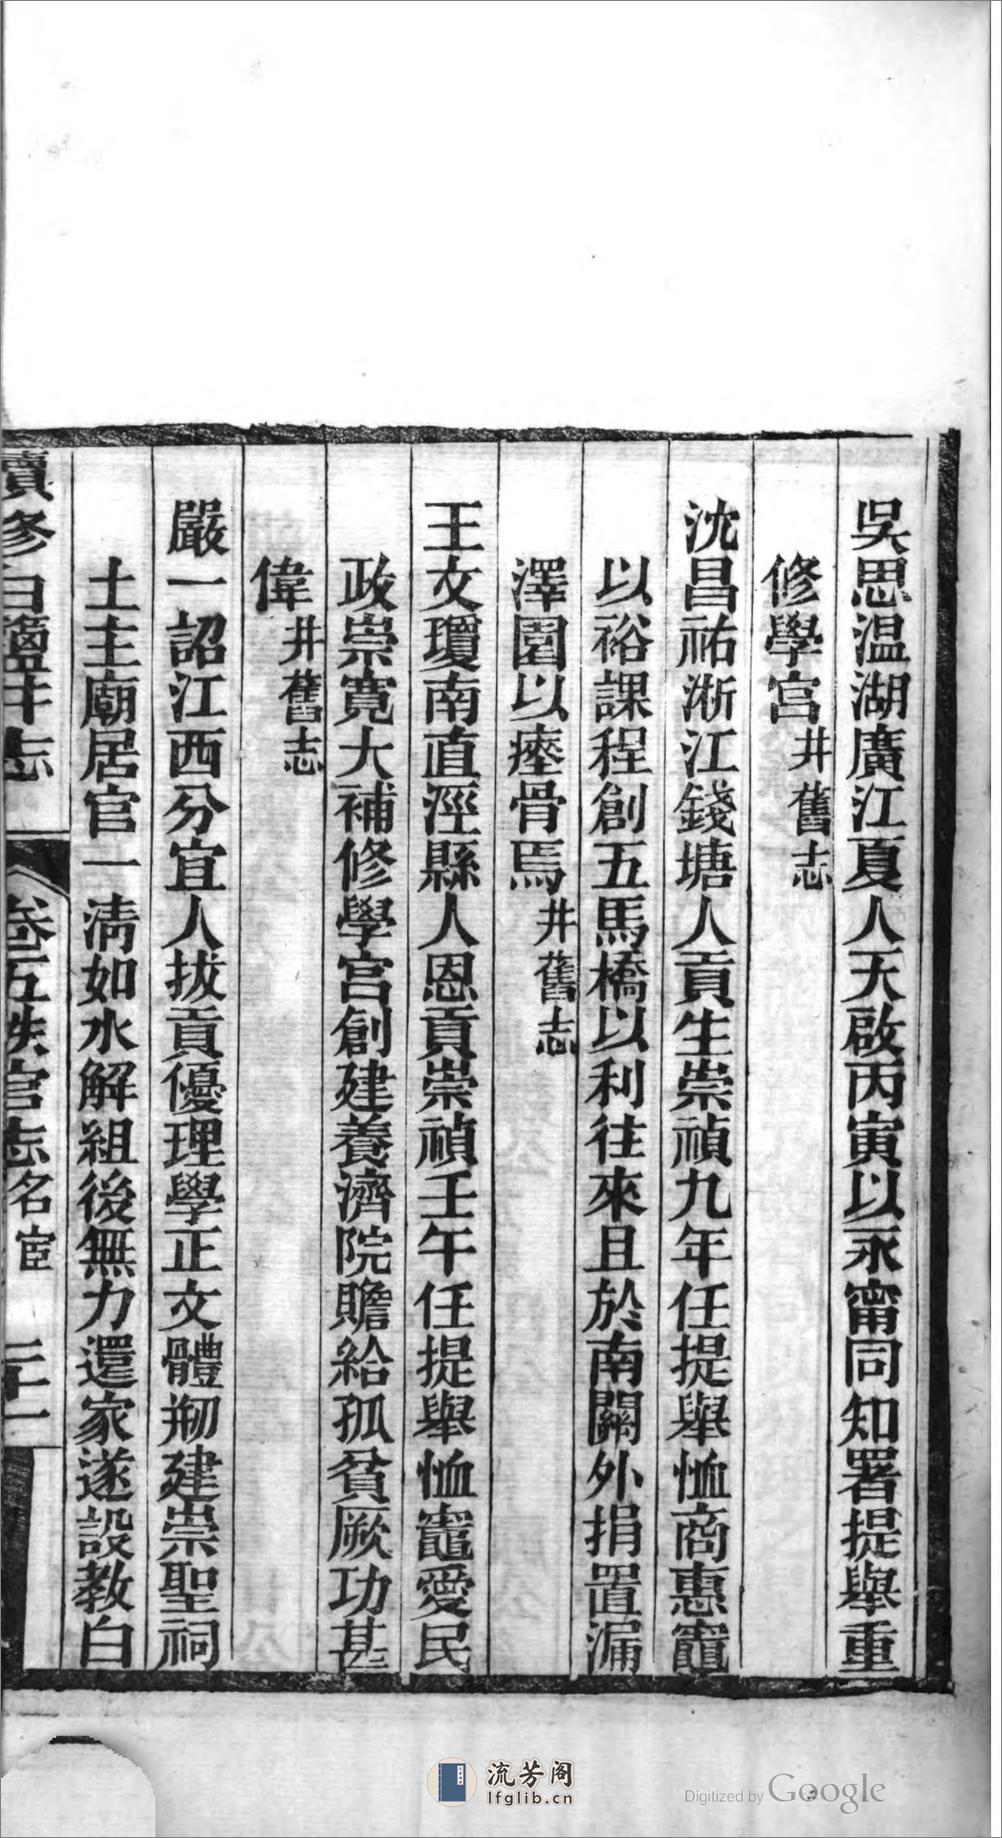 吳思温湖廣江夏人天啟丙寅以永甯同知署提舉重
修學宮井舊志
沈昌祐浙江錢塘人貢生崇禎九年任提舉恤商惠竈
以裕課程創五馬橋以利往來且於南關外捐置漏
澤園以瘞骨焉井舊志
王文瓊南直涇縣人恩貢崇禎壬午任提舉恤竈愛民
政崇寬大補修學宮創建養濟院贍給孤貧厥功甚
偉井舊志
嚴一詔江西分宜人拔貢優理學正文體剏建崇聖祠
土主廟居官一清如水解組後無力還家遂設教白
續修白鹽井志 卷五秩官志名宦 二十一
流芳阁
lfglib.cn
Digitized by Google